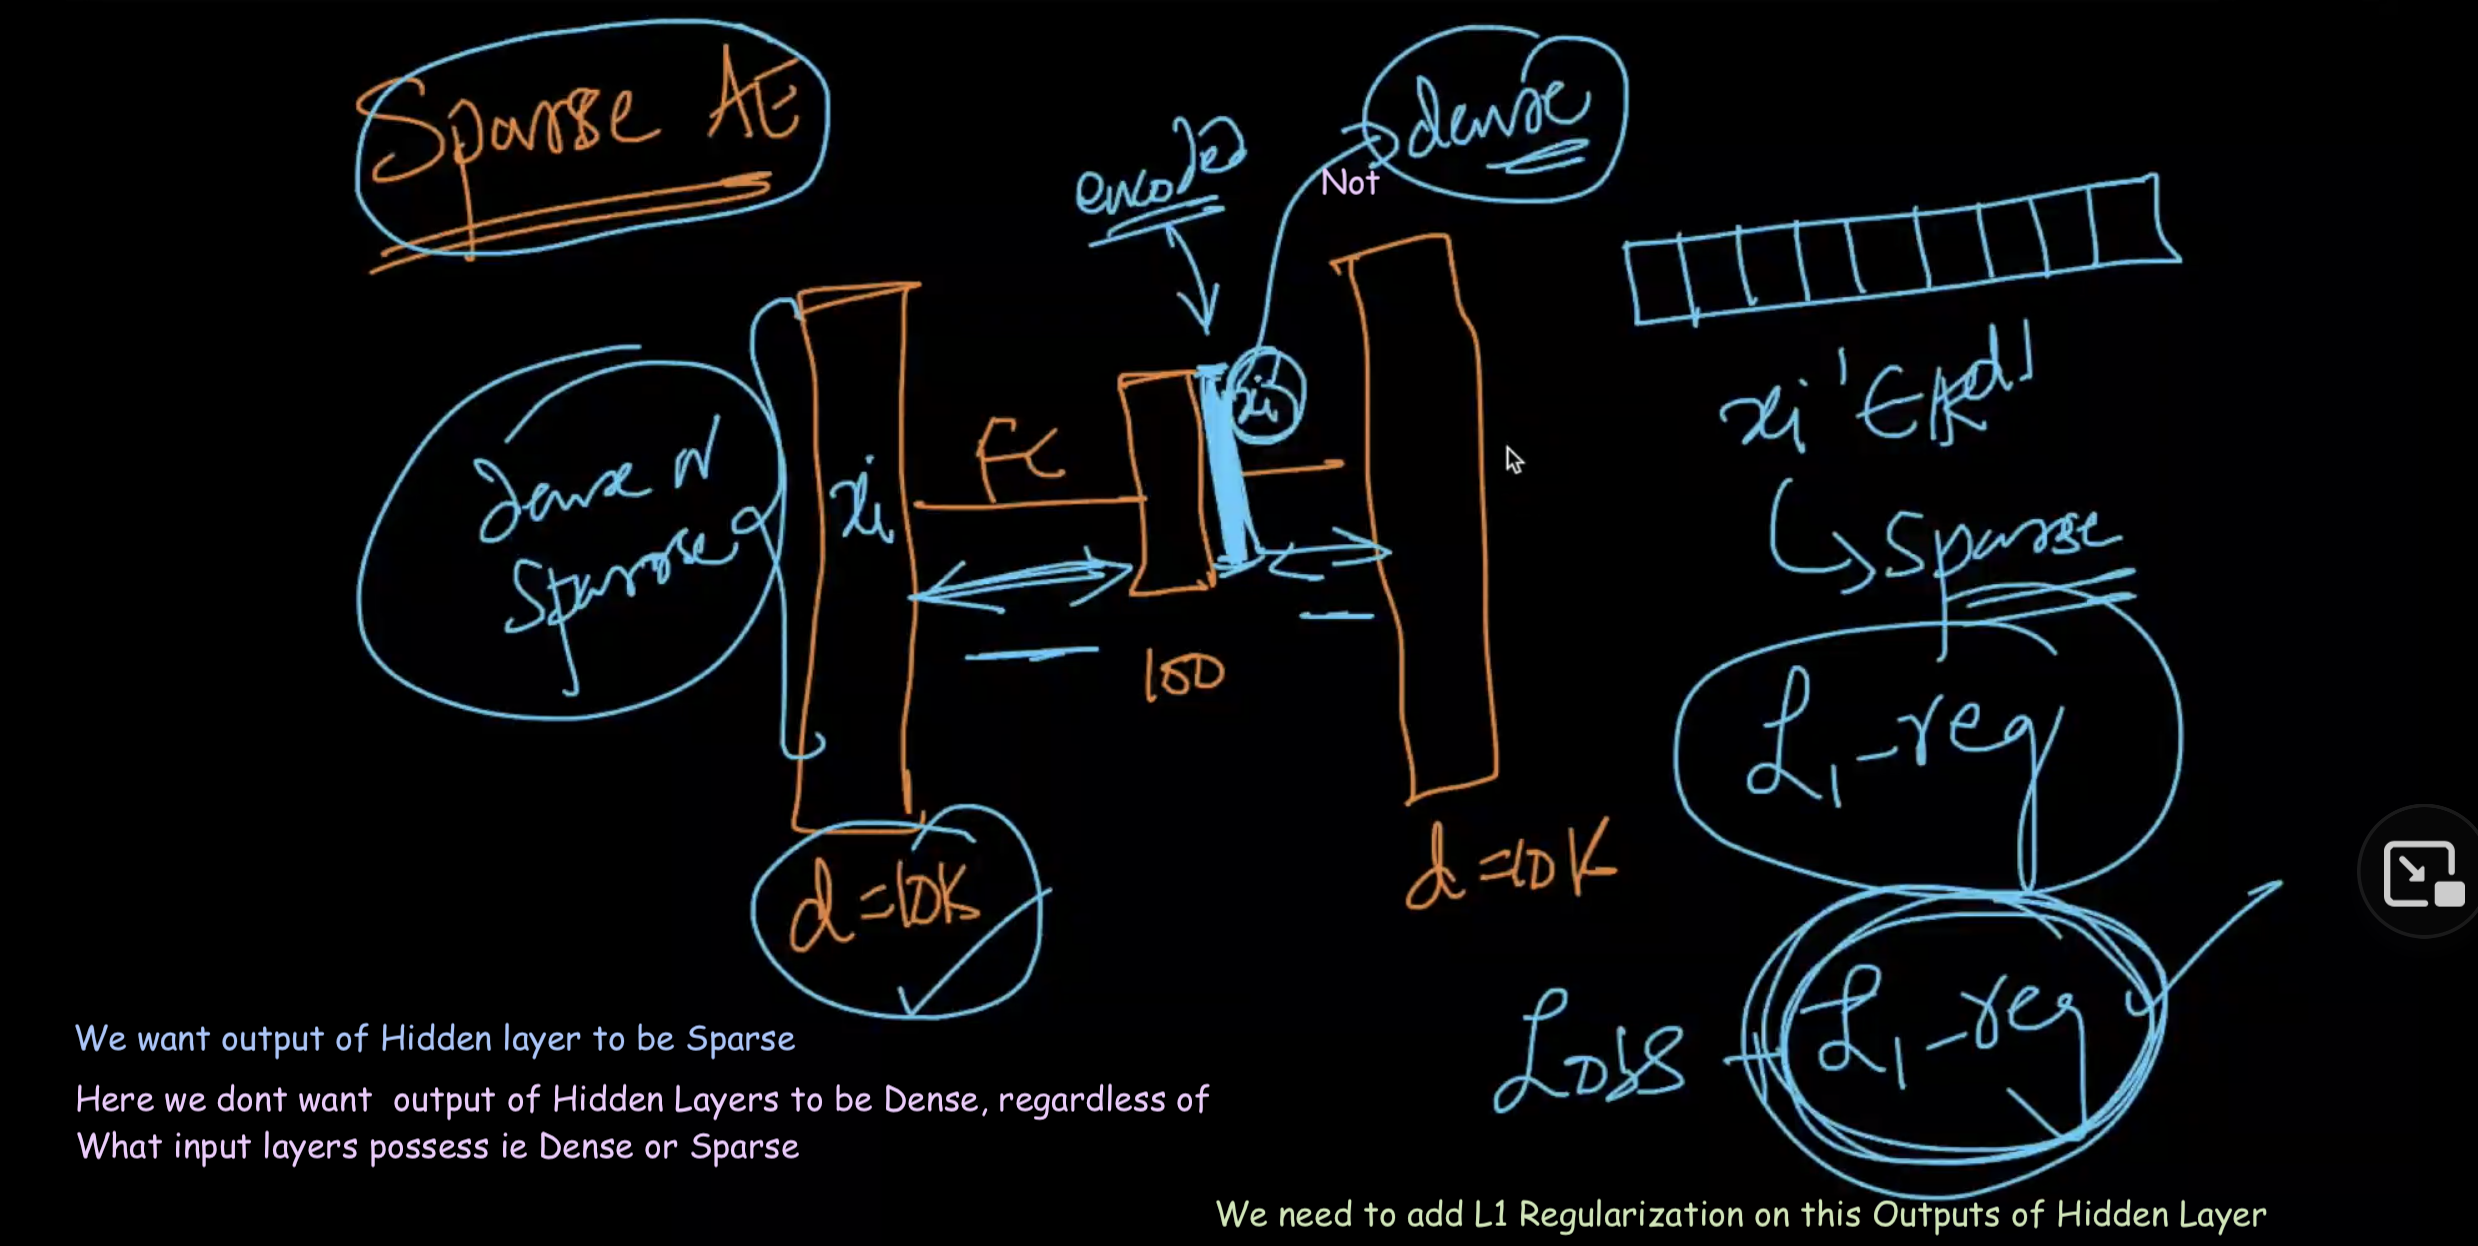 Sparse AE
encoded
dense
Not
xi
FC
xi'
Dense or
Sparse
100
d=10K
d=10K
xi' ∈ ℝd'
Sparse
L1-reg
Loss + L1-reg
We want output of Hidden layer to be Sparse
Here we dont want output of Hidden Layers to be Dense, regardless of
What input layers possess ie Dense or Sparse
We need to add L1 Regularization on this Outputs of Hidden Layer